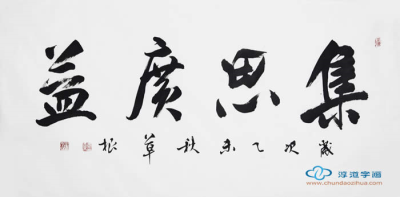 集思廣益
歲次乙未秋草根
淳道字画
www.chundaozihua.com